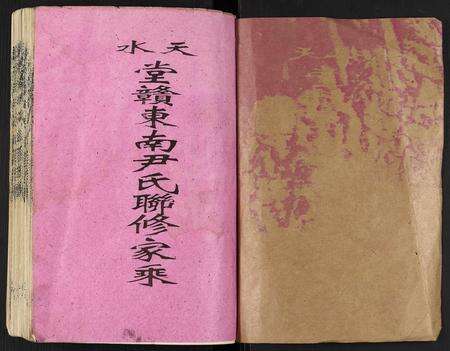 天水
堂贛東南尹氏聯修家乘